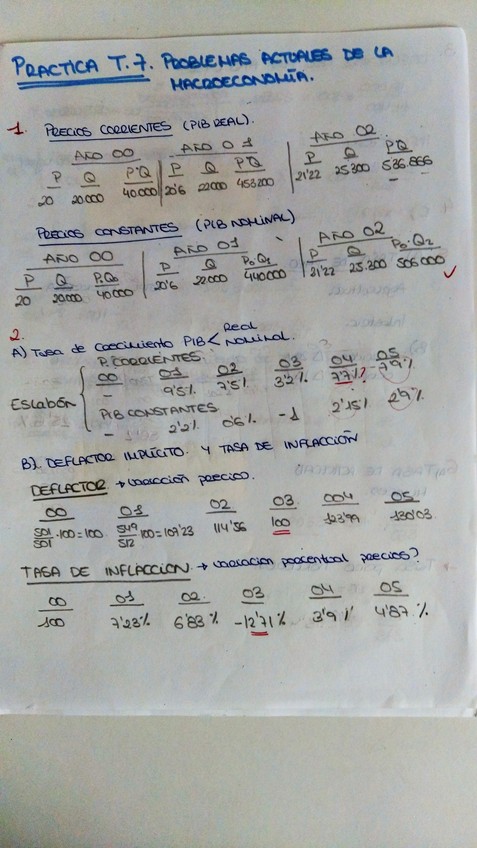 PRACTICA T.7. PROBLEMAS ACTUALES DE LA
MACROECONOMÍA.
1. PRECIOS CORRIENTES (PIB REAL).
AÑO 00 AÑO 01 AÑO 02
P Q P·Q P Q P·Q P Q PQ
20 20000 40000 20'6 22000 453200 21'22 25300 536.866
PRECIOS CONSTANTES (PIB NOMINAL)
AÑO 00 AÑO 01 AÑO 02
P Q P0Q0 P Q P0·Q1 P Q P0·Q2
20 20000 40000 20'6 22000 440000 21'22 25.300 506000
2.
A) Tasa de crecimiento PIB < Real
Nominal.
P. CORRIENTES.
00 01 02 03 04 05
- 9'5% 7'5% 3'2% 7'7% -7'9%
Eslabón
PIB CONSTANTES
- 2'2% 0'6% -1 2'15% 2'9%
B). DEFLACTOR IMPLÍCITO Y TASA DE INFLACCIÓN
DEFLACTOR → variacción precios.
00 01 02 03 004 05
501/501·100=100 549/512·100=107'23 114'56 100 123'99 130'03
TASA DE INFLACCION. → variacion porcentual precios?
00 01 02 03 04 05
100 7'23% 6'83% -12'71% 3'9% 4'87%